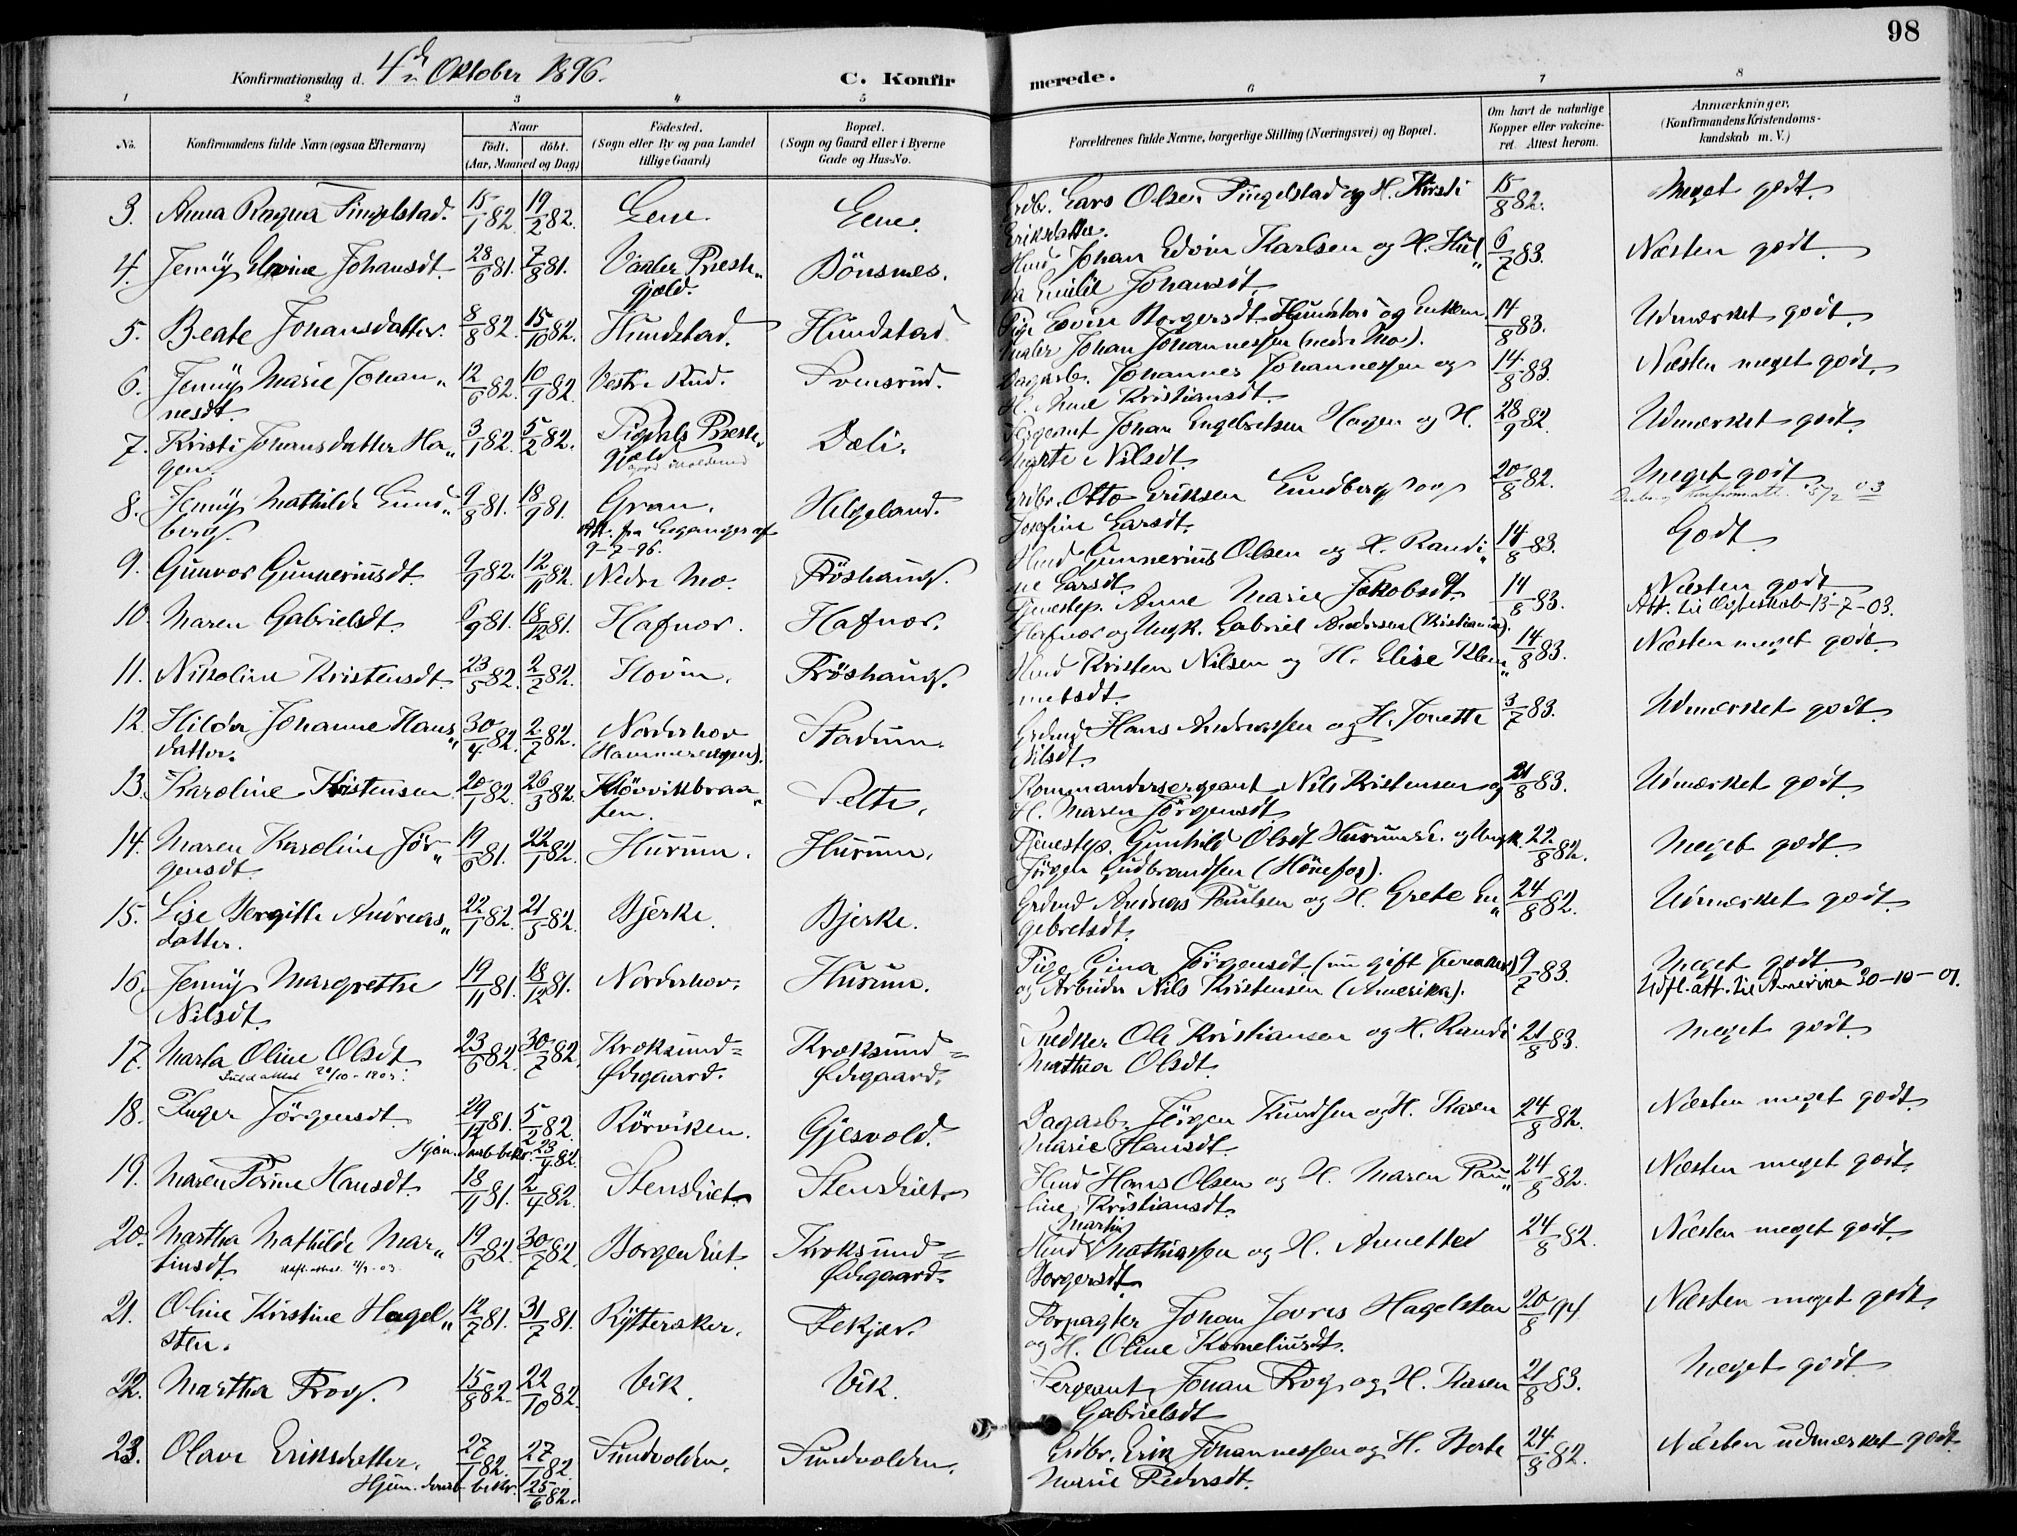 98
Konfirmationsdag d. 4de Oktober 1896.
C. Konfirmerede.
1 2 3 4 5 6 7 8
No.
Konfirmandens fulde Navn (ogsaa Efternavn)
Naar
født. døbt.
(Aar, Maaned og Dag)
Fødested.
(Sogn eller By og paa Landet
tillige Gaard)
Bopæl.
(Sogn og Gaard eller i Byerne
Gade og Hus-No.
Forældrenes fulde Navne, borgerlige Stilling (Næringsvei) og Bopæl.
Om havt de naturlige
Kopper eller vakcine-
ret. Attest herom.
Anmærkninger.
(Konfirmandens Kristendoms-
kundskab m. V.)
3. Anna Ragna Fingelstad. 15/1 82. 19/2 82. Lene. Lene. Grdbr. Lars Olsen Fingelstad og H. Kirsti 15/8 82. Meget godt.
Eriksdatter.
4. Jenny Elvine Johansdt. 28/6 81. 7/8 81. Vaaler Præste- Bönsnes. Husmd Johan Edvin Karlsen og H. Hul- 6/7 83. Næsten godt.
gjæld. da Emilie Johansdt.
5. Beate Johansdatter. 8/8 82. 15/10 82. Hundstad. Hundstad. Pige Edvine Borgersdt. Hundstad og Enkem. 14/8 83. Udmærket godt.
Johan Johannessen (nedre Mo).
6. Jenny Marie Johan- 12/6 82. 10/9 82. Vestre Rud. Svensrud. Dagarb. Johannes Johannessen og 14/8 83. Næsten meget godt.
nesdt. H. Anne Kristiansdt.
7. Kristi Johansdatter Ha- 3/1 82. 5/2 82. Sigdals Præste- Dæli. Sergeant Johan Engebretsen Hagen og H. 28/9 82. Udmærket godt.
gen. gjæld Marte Nilsdt.
8. Jenny Mathilde Lund- 9/8 81. 18/9 81. Gran. Helgeland. Grdbr. Otto Eriksen Lundberg og 20/8 82. Meget godt
berg. Att. fra Sognepr af Josefine Larsdt.
9-7-96.
9. Gunvor Gunneriusdt. 9/9 82. 12/11 82. Nedre Mo. Fröshaug. Husmd Gunnerius Olsen og H. Randi- 14/8 83. Godt.
ne Larsdt.
10. Maren Gabrielsdt. 6/9 81. 18/12 81. Hafnor. Hafnor. Tjenestep. Anne Marie Jakobsdt. 14/8 83. Næsten godt.
Hafnor og Ungk. Gabriel Andersen (Kristiania). Att. til Ægteskab 13-7-03.
11. Nikoline Kristensdt. 23/5 82. 2/7 82. Hovin. Fröshaug. Husmd Kristen Nilsen og H. Elise Klem- 14/8 83. Næsten meget godt.
metsdt.
12. Hilda Johanne Hans- 30/4 82. 2/7 82. Norderhov Stadum. Grdmd Hans Andreassen og H. Jonette 3/7 83. Udmærket godt.
datter. Nilsdt.
13. Karoline Kristensen. 20/1 82. 26/3 82. Klövvikbraa- Selte. Kommandersergeant Nils Kristensen og 21/8 83. Udmærket godt.
ten. H. Maren Jörgensdt.
14. Maren Karoline Jör- 19/6 81. 22/1 82. Hurum. Hurum. Tjenestep. Gunhild Olsdt Hurumsk. og Ungk. 22/8 82. Meget godt.
gensdt. Jörgen Gudbrandsen (Hönefos).
15. Lise Bergitte Andreas- 22/1 82. 21/5 82. Bjerke. Bjerke. Grdmd Andreas Paulsen og H. Grete En- 24/8 82. Udmærket godt.
datter. gebretsdt.
16. Jenny Margrethe 19/11 81. 18/12 81. Norderhov. Hurum. Pige Lina Jörgensdt. (nu gift Amerika) 9/7 83. Meget godt.
Nilsdt. og Arbeider Nils Kristensen (Amerika). Udfl. att. til Amerika 20-10-01.
17. Marta Oline Olsdt 23/6 82. 30/7 82. Kroksund= Kroksund= Snedker Ole Kristiansen og H. Randi 21/8 83. Meget godt.
Ødegaard. Ødegaard. Mathea Olsdt.
18. Inger Jörgensdt. 29/12 81. 5/2 82. Rörviken. Gjesvold. Dagarb. Jörgen Knudsen og H. Karen 24/8 82. Næsten meget godt.
Hjem. daab bekr. 23/4 82. Marie Hansdt.
19. Maren Perine Hansdt. 18/11 81. 2/4 82. Stensleet. Stensleet. Husmd Hans Olsen og H. Maren Pau- 24/8 82. Næsten meget godt.
line Kristiansdt.
20. Martha Mathilde Mar- 19/6 82. 30/7 82. Borgenleet. Kroksund= Husmd Martin Mathiassen og H. Annette 24/8 82. Næsten meget godt.
tinsdt. Ødegaard. Borgersdt.
21. Oline Kirstine Hagel- 12/7 81. 31/7 81. Ryttersker. Fekjær. Forpagter Johan Jovres Hagelsten 20/8 94. Næsten meget godt.
sten. og H. Oline Korneliusdt.
22. Martha Frog. 15/8 82. 22/10 82. Vik. Vik. Sergeant Johan Frog og H. Karen 21/8 83. Meget godt.
Gabrielsdt.
23. Olave Eriksdatter. 27/1 82. 27/1 82. Sundvolden. Sundvolden. Grdbr. Erik Johannessen og H. Berte 24/8 82. Næsten udmærket godt.
Hjem. daab bekr. 25/6 82. Marie Pedersdt.